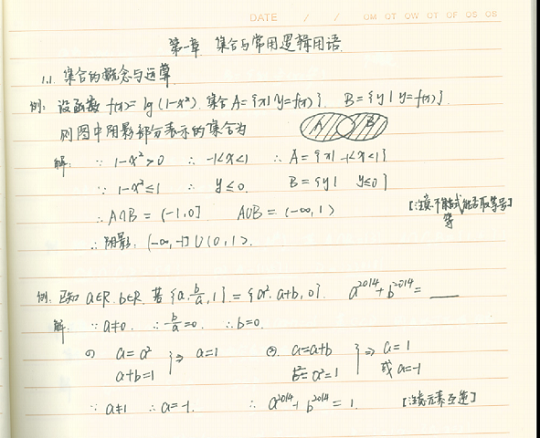 DATE / /
OM OT OW OT OF OS OS
第一章 集合与常用逻辑用语
1.1 集合的概念与运算
例: 设函数 f(x)= lg (1-x²) 集合 A={x| y=f(x)}. B={y| y=f(x)}.
则图中阴影部分表示的集合为
A B
解: ∵ 1-x²>0 ∴ -1<x<1 ∴ A={x| -1<x<1}
∵ 1-x²≤1 ∴ y≤0. B={y| y≤0}
∴ A∩B = (-1,0] A∪B = (-∞, 1)
等
∴ 阴影: (-∞, -1] ∪ (0, 1).
例. 已知 a∈R. b∈R. 若 {a, b/a, 1} = {a², a+b, 0}. a²⁰¹⁴+b²⁰¹⁴= ____
解 ∵ a≠0. ∴ b/a=0. ∴ b=0.
① a=a² a+b=1 } ⇒ a=1 ② a=a+b a²=1 } ⇒ a=1 或 a=-1
∵ a≠1 ∴ a=-1. ∴ a²⁰¹⁴+b²⁰¹⁴ = 1. [注意元素互异]